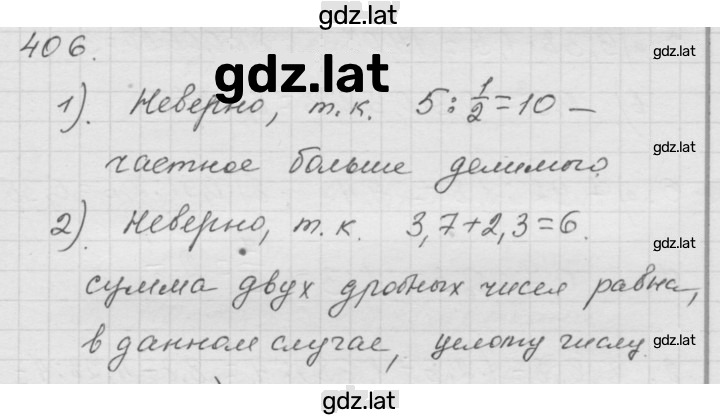 gdz.lat
406.
gdz.lat
gdz.lat
1). Неверно, т.к. 5:1/2=10 –
gdz.lat
частное больше делимого.
2). Неверно, т.к. 3,7+2,3=6.
gdz.lat
сумма двух дробных чисел равна,
в данном случае, целому числу.
gdz.lat
gdz.lat